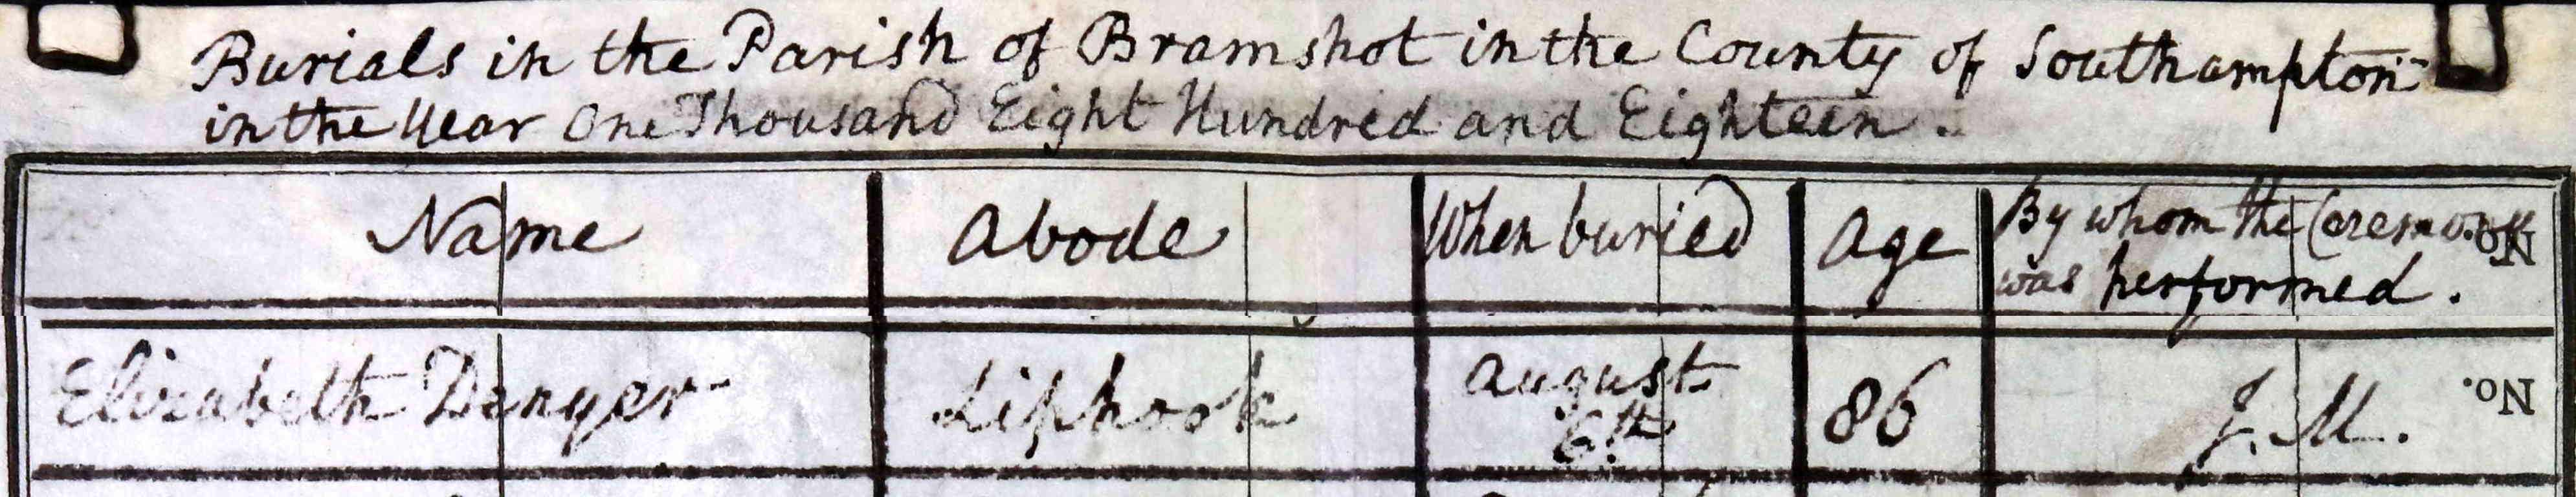 Burials in the Parish of Bramshot in the County of Southampton
in the Year One Thousand Eight Hundred and Eighteen.
Name Abode When buried Age By whom the Ceremony No.
was performed.
Elizabeth Denyer Liphook August 6th. 86 J. M. No.